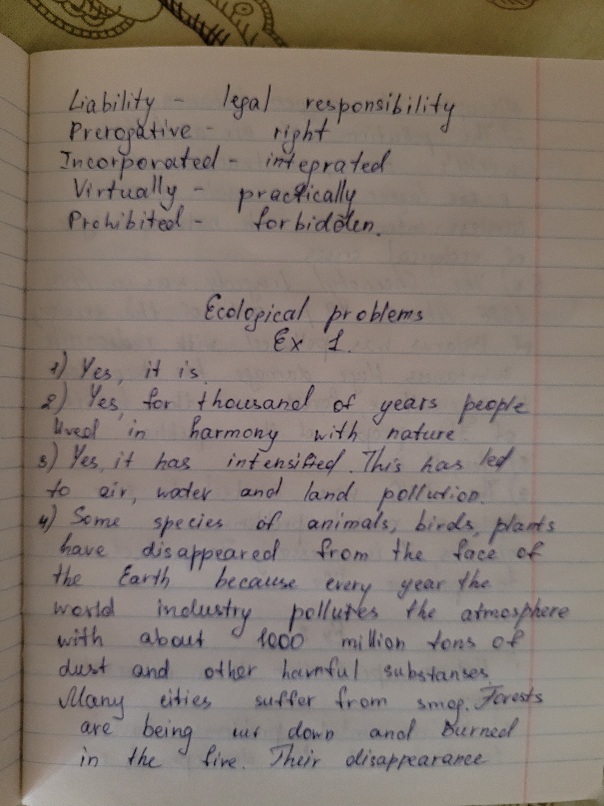 Liability - legal responsibility
Prerogative - right
Incorporated - integrated
Virtually - practically
Prohibited - forbidden.
Ecological problems
Ex 1.
1) Yes, it is.
2) Yes, for thousand of years people
lived in harmony with nature
3) Yes, it has intensified. This has led
to air, water and land pollution.
4) Some species of animals, birds, plants
have disappeared from the face of
the Earth because every year the
world industry pollutes the atmosphere
with about 1000 million tons of
dust and other harmful substanses.
Many cities suffer from smog. Forests
are being cut down and burned
in the fire. Their disappearance